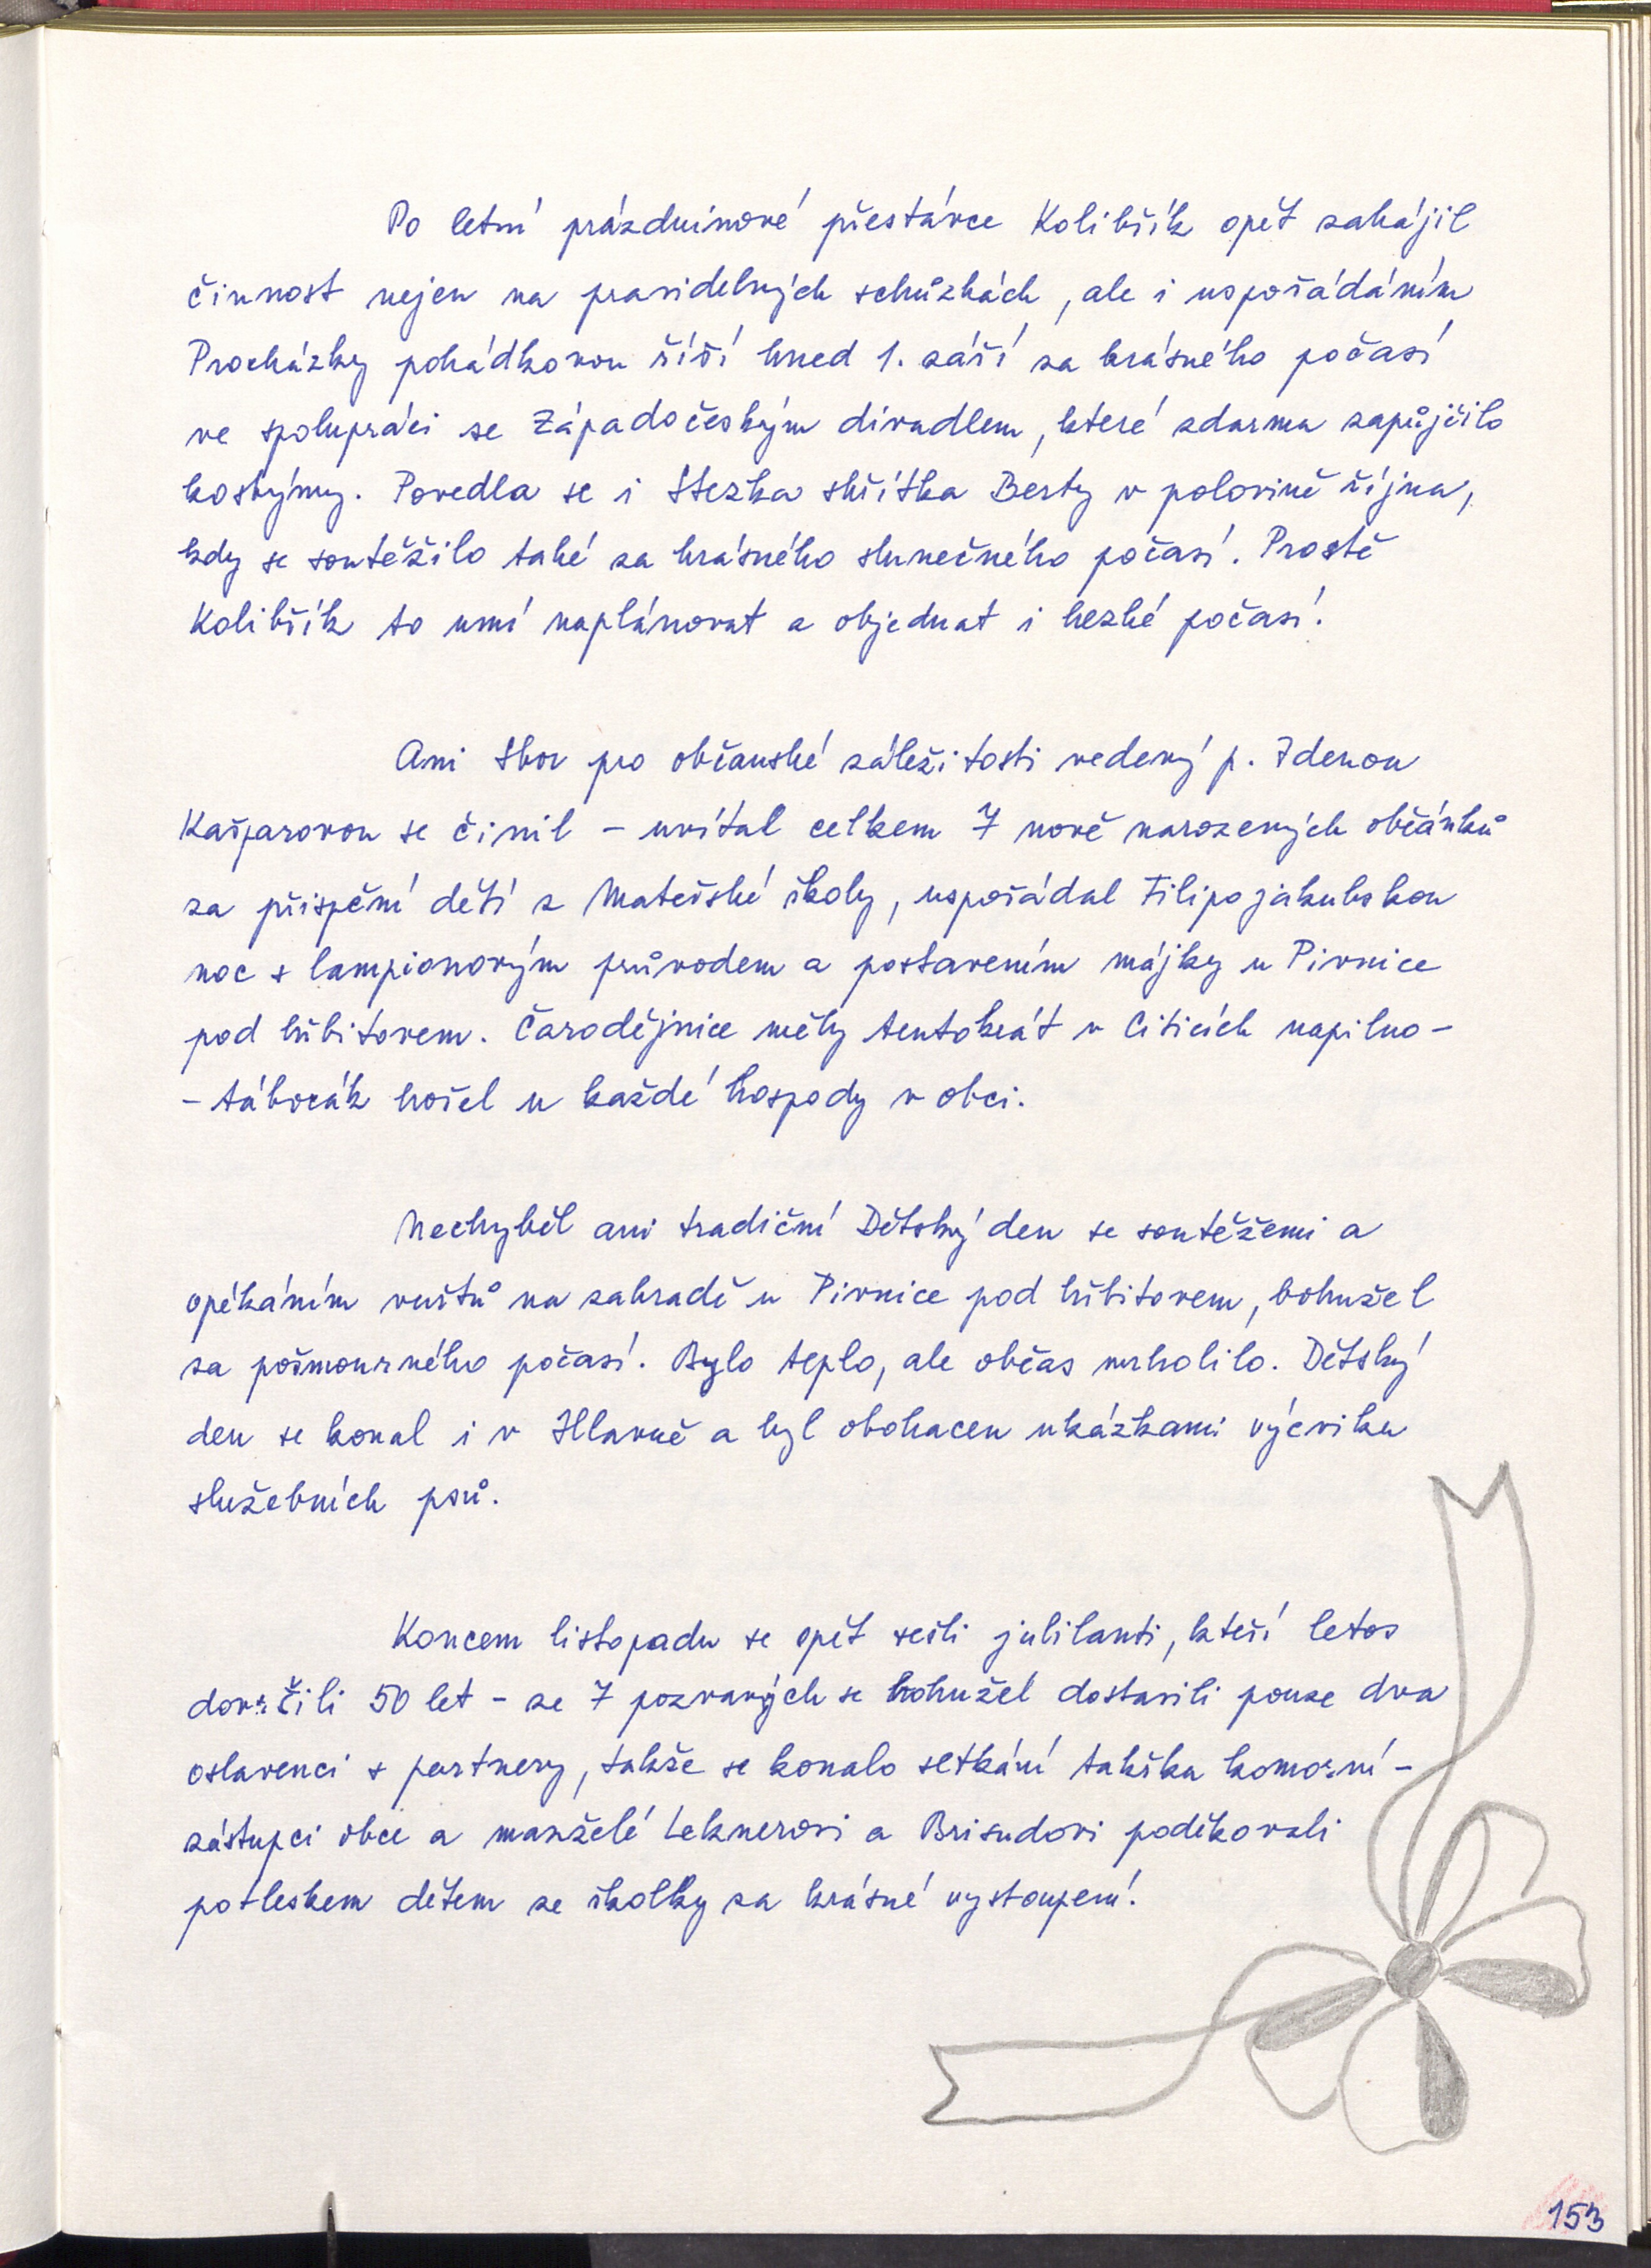 Po letní prázdninové přestávce Kolibřík opět zahájil
činnost nejen na pravidelných schůzkách, ale i uspořádáním
Procházky pohádkovou říší hned 1. září za krásného počasí
ve spolupráci se Západočeským divadlem, které zdarma zapůjčilo
kostýmy. Povedla se i Stezka skřítka Besty v polovině října,
kdy se soutěžilo také za krásného slunečného počasí. Prostě
Kolibřík to umí naplánovat a objednat i hezké počasí!
Ani Sbor pro občanské záležitosti vedený p. Zdenou
Kašparovou se činil – uvítal celkem 7 nově narozených občánků
za přispění dětí z Mateřské školy, uspořádal Filipojakubskou
noc s lampionovým průvodem a postavením májky u Pivnice
pod hřbitovem. Čarodějnice měly tentokrát v Citicích napilno –
– táborák hořel u každé hospody v obci.
Nechyběl ani tradiční Dětský den se soutěžemi a
opékáním vuřtů na zahradě u Pivnice pod hřbitovem, bohužel
za pošmourného počasí. Bylo teplo, ale občas mrholilo. Dětský
den se konal i v Hlavně a byl obohacen ukázkami výcviku
služebních psů.
Koncem listopadu se opět sešli jubilanti, kteří letos
dovršili 50 let – ze 7 pozvaných se bohužel dostavili pouze dva
oslavenci s partnery, takže se konalo setkání takřka komorní –
zástupci obce a manželé Leknerovi a Brisudovi poděkovali
potleskem dětem ze školky za krásné vystoupení!
153